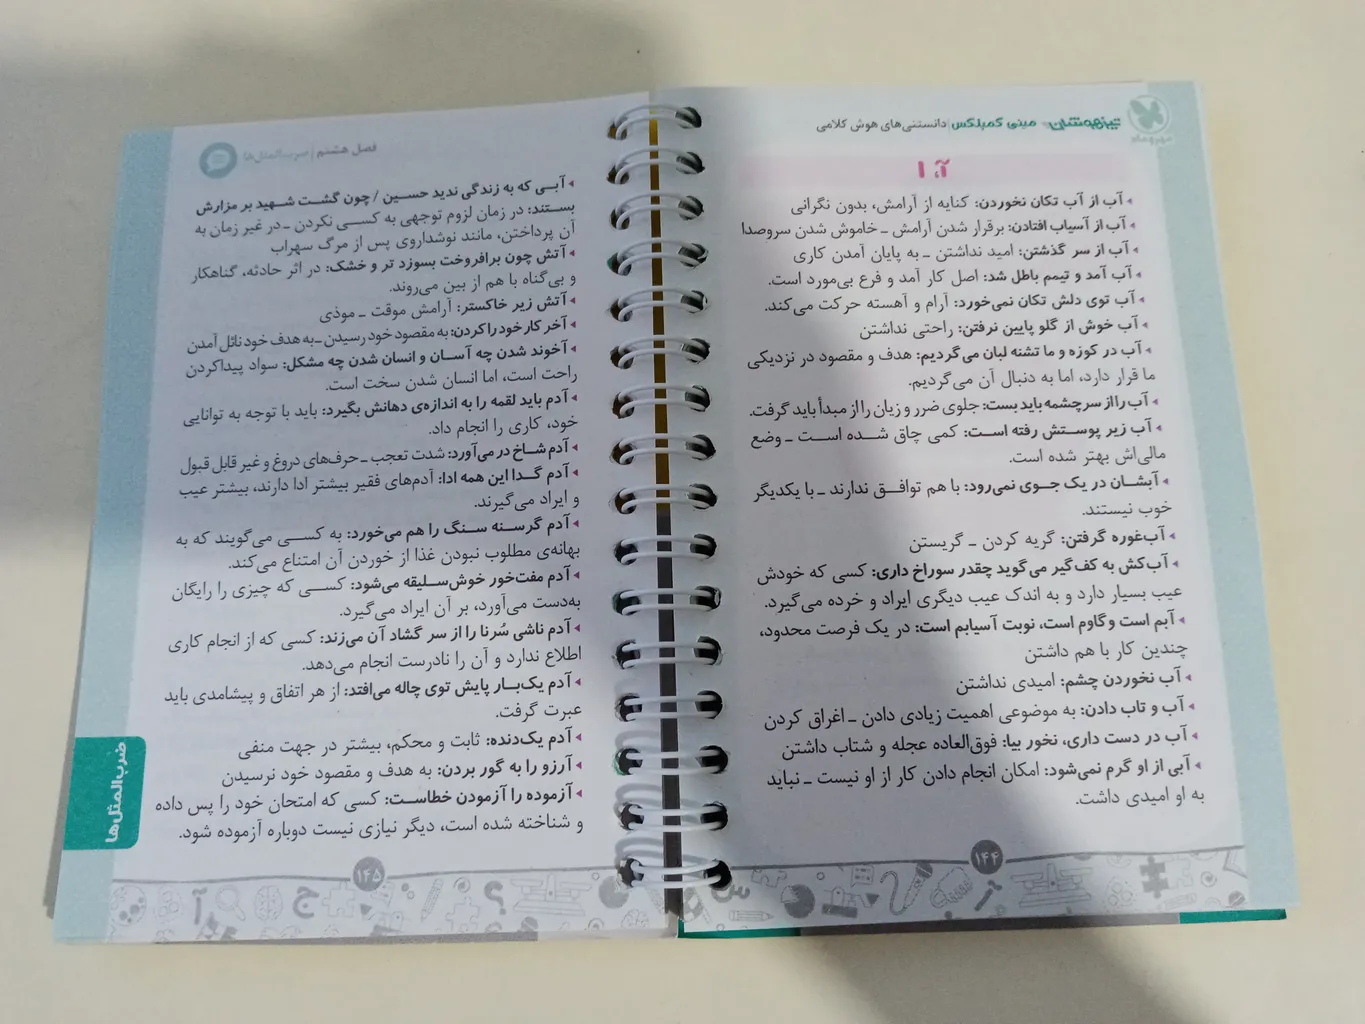 تیزهوشان مینی کمپلکس | دانستنی‌های هوش کلامی
مهروماه
آ، ا
آب از آب تکان نخوردن: کنایه از آرامش، بدون نگرانی
آب از آسیاب افتادن: برقرار شدن آرامش ـ خاموش شدن سروصدا
آب از سر گذشتن: امید نداشتن ـ به پایان آمدن کاری
آب آمد و تیمم باطل شد: اصل کار آمد و فرع بی‌مورد است.
آب توی دلش تکان نمی‌خورد: آرام و آهسته حرکت می‌کند.
آب خوش از گلو پایین نرفتن: راحتی نداشتن
آب در کوزه و ما تشنه لبان می‌گردیم: هدف و مقصود در نزدیکی
ما قرار دارد، اما به دنبال آن می‌گردیم.
آب را از سرچشمه باید بست: جلوی ضرر و زیان را از مبدأ باید گرفت.
آب زیر پوستش رفته است: کمی چاق شده است ـ وضع
مالی‌اش بهتر شده است.
آبشان در یک جوی نمی‌رود: با هم توافق ندارند ـ با یکدیگر
خوب نیستند.
آب‌غوره گرفتن: گریه کردن ـ گریستن
آب‌کش به کف‌گیر می‌گوید چقدر سوراخ داری: کسی که خودش
عیب بسیار دارد و به اندک عیب دیگری ایراد و خرده می‌گیرد.
آبم است و گاوم است، نوبت آسیابم است: در یک فرصت محدود،
چندین کار با هم داشتن
آب نخوردن چشم: امیدی نداشتن
آب و تاب دادن: به موضوعی اهمیت زیادی دادن ـ اغراق کردن
آب در دست داری، نخور بیا: فوق‌العاده عجله و شتاب داشتن
آبی از او گرم نمی‌شود: امکان انجام دادن کار از او نیست ـ نباید
به او امیدی داشت.
۱۴۴
فصل هشتم | ضرب‌المثل‌ها
آبی که به زندگی ندید حسین / چون گشت شهید بر مزارش
بستند: در زمان لزوم توجهی به کسی نکردن ـ در غیر زمان به
آن پرداختن، مانند نوشداروی پس از مرگ سهراب
آتش چون برافروخت بسوزد تر و خشک: در اثر حادثه، گناهکار
و بی‌گناه با هم از بین می‌روند.
آتش زیر خاکستر: آرامش موقت ـ موذی
آخر کار خود را کردن: به مقصود خود رسیدن ـ به هدف خود نائل آمدن
آخوند شدن چه آسان و انسان شدن چه مشکل: سواد پیداکردن
راحت است، اما انسان شدن سخت است.
آدم باید لقمه را به اندازه‌ی دهانش بگیرد: باید با توجه به توانایی
خود، کاری را انجام داد.
آدم شاخ در می‌آورد: شدت تعجب ـ حرف‌های دروغ و غیر قابل قبول
آدم گدا این همه ادا: آدم‌های فقیر بیشتر ادا دارند، بیشتر عیب
و ایراد می‌گیرند.
آدم گرسنه سنگ را هم می‌خورد: به کسی می‌گویند که به
بهانه‌ی مطلوب نبودن غذا از خوردن آن امتناع می‌کند.
آدم مفت‌خور خوش‌سلیقه می‌شود: کسی که چیزی را رایگان
به‌دست می‌آورد، بر آن ایراد می‌گیرد.
آدم ناشی سُرنا را از سر گشاد آن می‌زند: کسی که از انجام کاری
اطلاع ندارد و آن را نادرست انجام می‌دهد.
آدم یک‌بار پایش توی چاله می‌افتد: از هر اتفاق و پیشامدی باید
عبرت گرفت.
آدم یک‌دنده: ثابت و محکم، بیشتر در جهت منفی
آرزو را به گور بردن: به هدف و مقصود خود نرسیدن
آزموده را آزمودن خطاست: کسی که امتحان خود را پس داده
و شناخته شده است، دیگر نیازی نیست دوباره آزموده شود.
ضرب‌المثل‌ها
۱۴۵